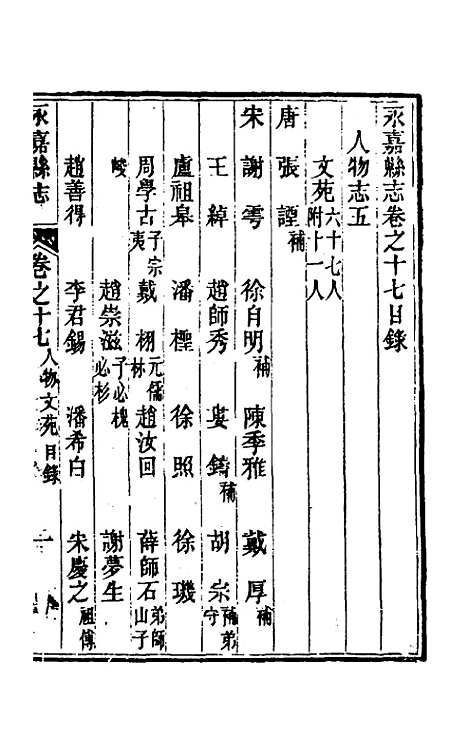 永嘉縣志卷之十七目錄
人物志五
文苑六十七人附十一人
唐 張諲補
宋 謝雩 徐自明補 陳季雅 戴厚補
王綽 趙師秀 婁鑄補 胡宗補弟守
盧祖皋 潘檉 徐照 徐璣
周學古子宗夷 戴栩元儒林 趙汝回 薛師石弟師山子
峻 趙崇滋子必槐必杉 謝夢生
趙善得 李君錫 潘希白 朱慶之祖傳
永嘉縣志 卷之十七 人物文苑 目錄 一